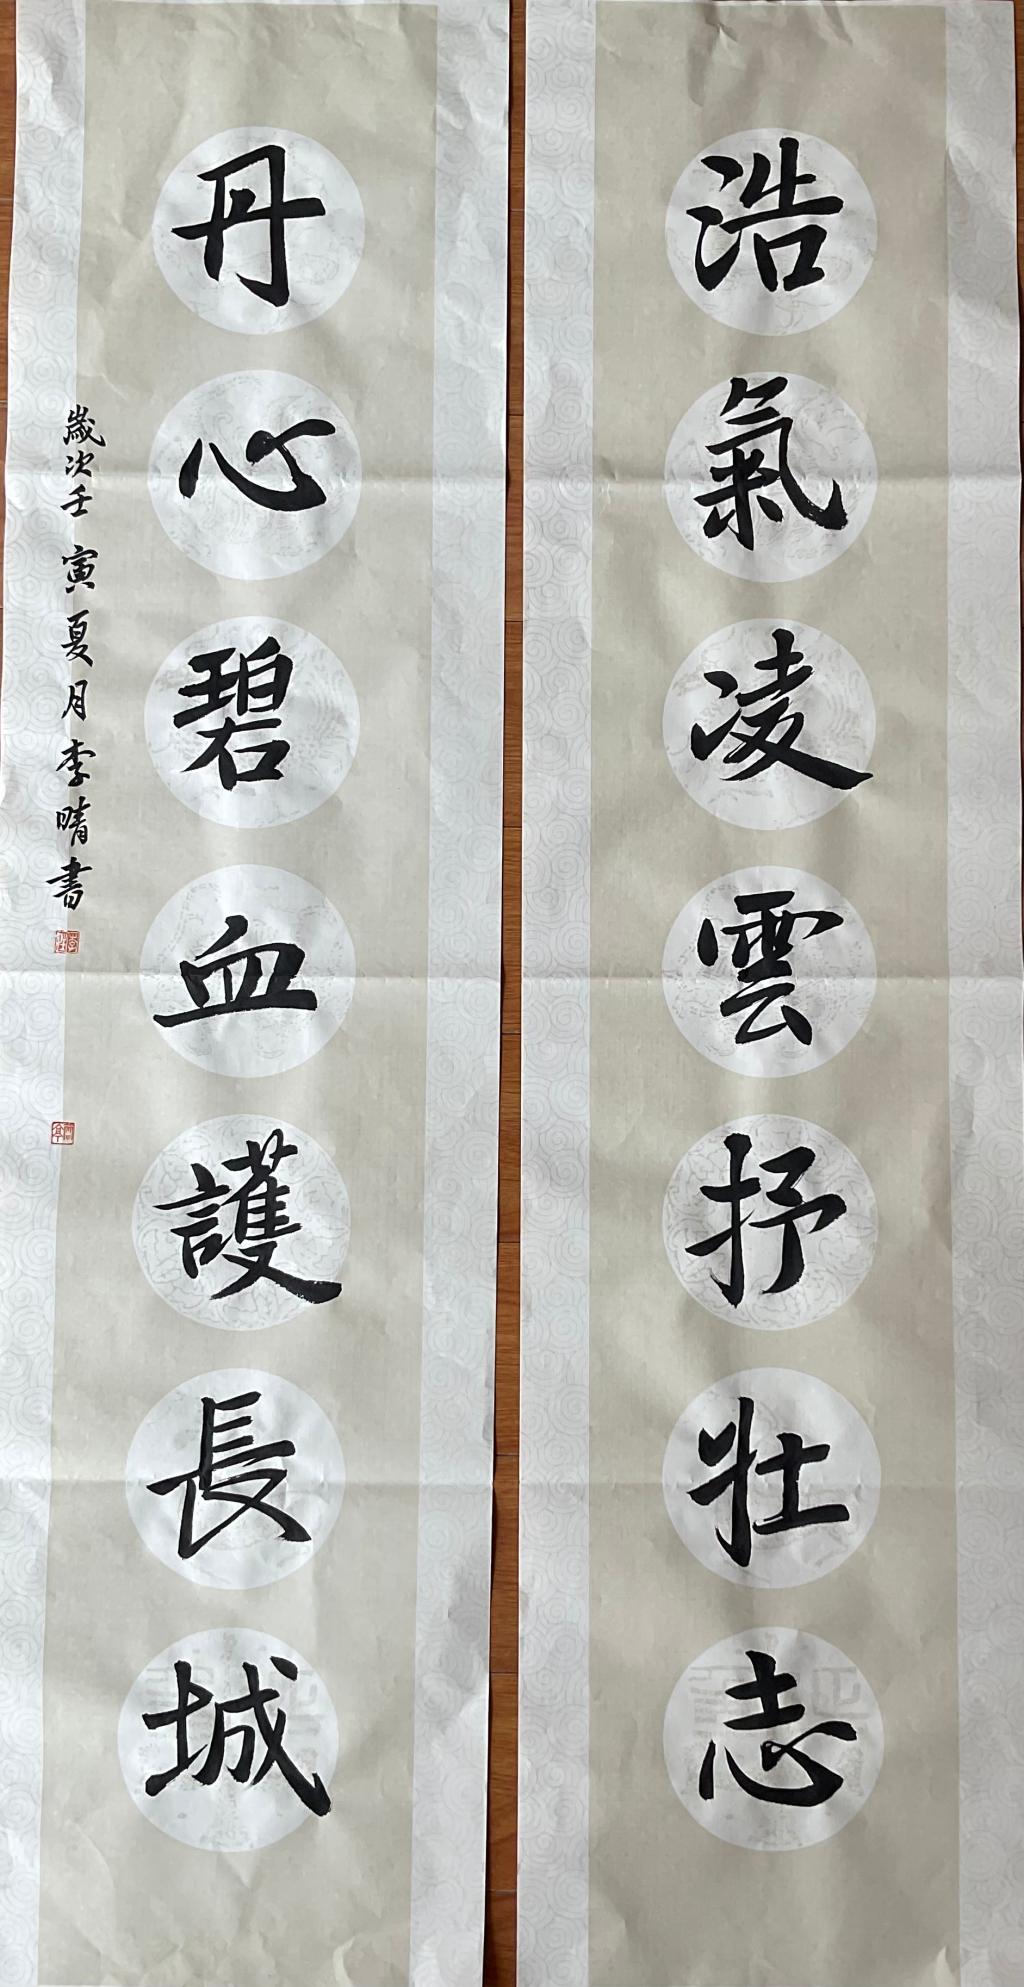 浩氣凌雲抒壯志
丹心碧血護長城
歲次壬寅夏月李晴書